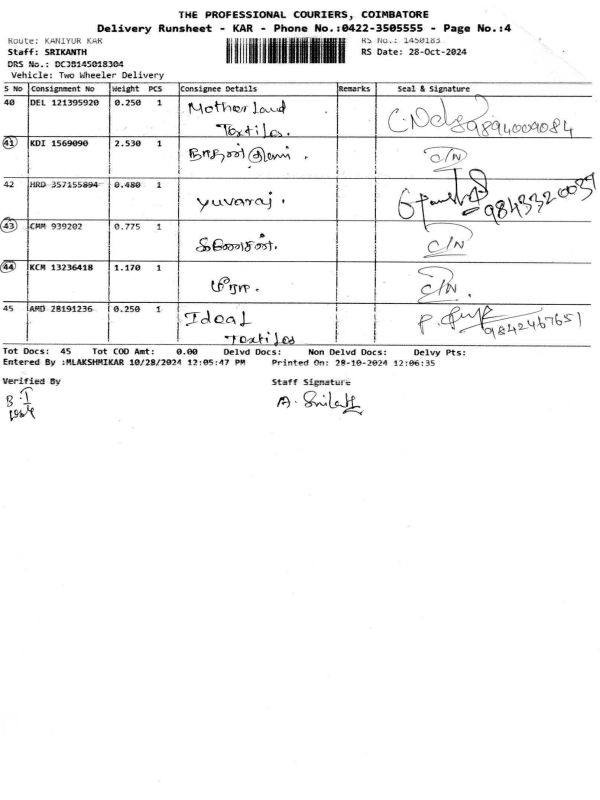 THE PROFESSIONAL COURIERS, COIMBATORE
Delivery Runsheet - KAR - Phone No.:0422-3505555 - Page No.:4
Route: KANIYUR KAR RS No.: 1450183
Staff: SRIKANTH RS Date: 28-Oct-2024
DRS No.: DCJB145018304
Vehicle: Two Wheeler Delivery
S No Consignment No Weight PCS Consignee Details Remarks Seal & Signature
40 DEL 121395920 0.250 1 Motherland
Textiles. 9894009084
41 KDI 1569090 2.530 1 C/N
42 HRD 357155894 0.480 1
Yuvaraj. 9843320037
43 CMM 939202 0.775 1
கணேசன். C/N
44 KCM 13236418 1.170 1
மீரா. C/N.
45 AMD 28191236 0.250 1 Ideal
Textiles 9842467651
Tot Docs: 45 Tot COD Amt: 0.00 Delvd Docs: Non Delvd Docs: Delvy Pts:
Entered By :MLAKSHMIKAR 10/28/2024 12:05:47 PM Printed On: 28-10-2024 12:06:35
Verified By Staff Signature